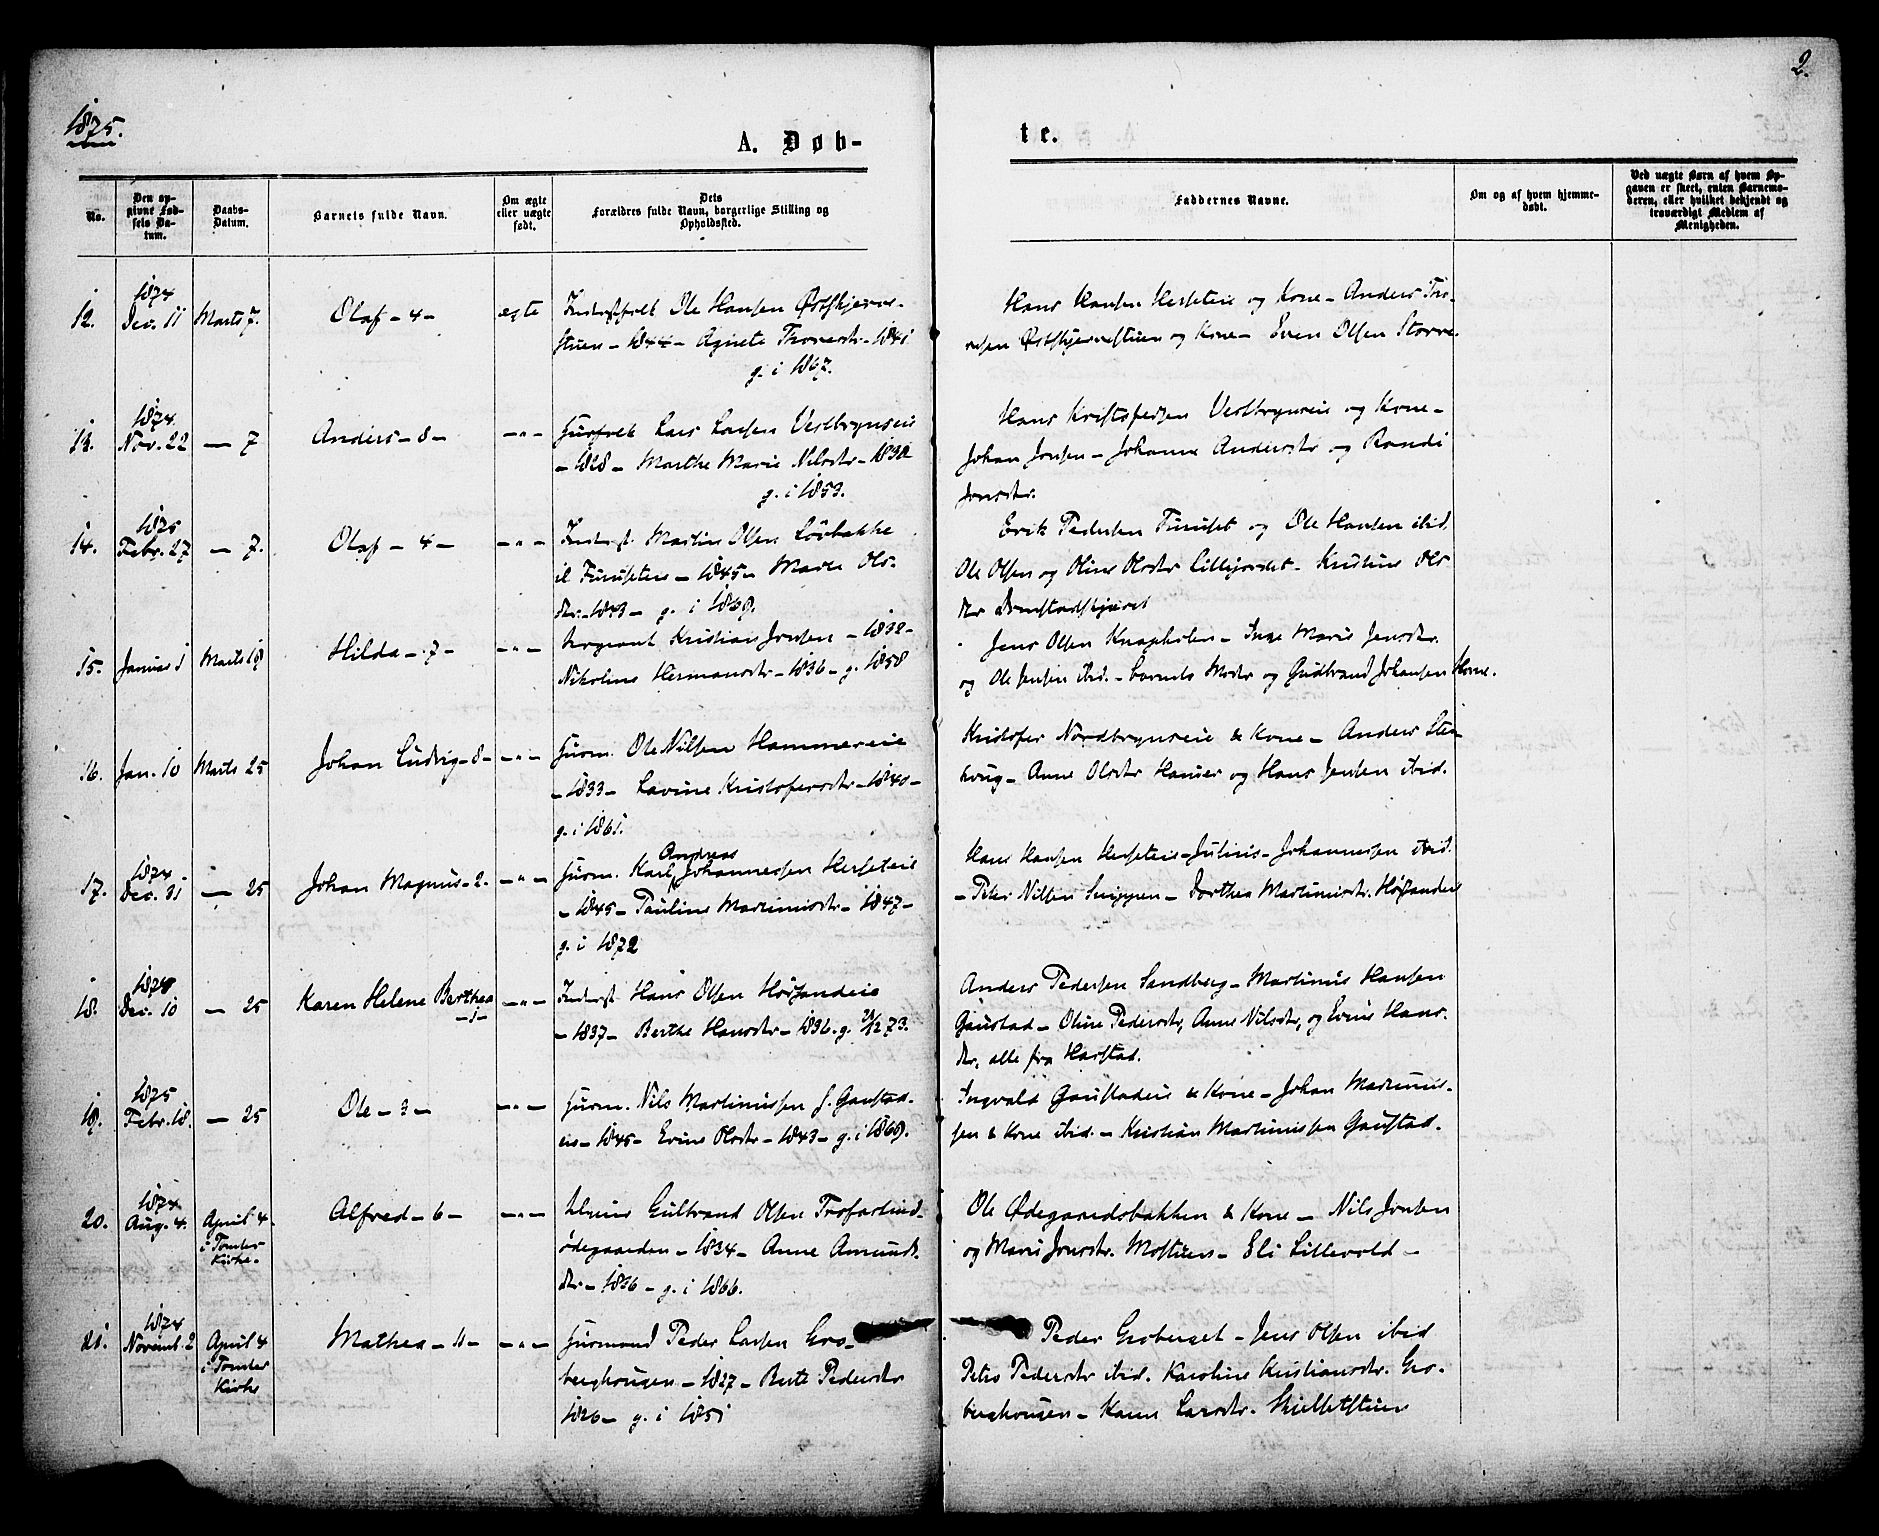 2.
1875.
A. Døb-
te.
No.
Den op-
givne Fød-
sels Da-
tum.
Daabs-
Datum.
Barnets fulde Navn.
Om ægte
eller uægte
født.
Dets
Forældres fulde Navn, borgerlige Stilling og
Opholdssted.
Faddernes Navne.
Om og af hvem hjemme-
døbt.
Ved uægte Børn af hvem Op-
gaven er skeet, enten Barnemo-
deren, eller hvilket bekjendt og
troværdigt Medlem af
Menigheden.
12.
1874
Dec. 11
Marts 7.
Olaf - 4 -
ægte
Ole Hansen
- 1844 - Agnete - 1841
g. i 1867.
Hans Hansen Herseteie og Kone - Anders
og Kone - Even Olsen
13.
1874.
Nov. 22
- 7
Anders - 8 -
- " -
Lars Larsen Vestbyneie
- 1828 - Marthe Marie Nilsdtr - 1832
g. i 1853.
Hans Kristofersen Vestbyneie og Kone -
Johan Jensen - Johanne Andersdtr og Randi
Jensdtr.
14.
1875
Febr. 27
- 7.
Olaf - 4 -
- " -
Inderst. Martin Olsen Løvbakke
- 1845 - Marte Ols-
dtr. - 1843 - g. i 1869.
Erik Pedersen og Ole Hansen ibid.
Ole Olsen og Oline Olsdtr Lillejordet - Kristine Ols
dtr
15.
Januar 1
Marts 19
Hilda - 7 -
- " -
Sergeant Kristian Jensen - 1832 -
Nikoline Hermansdtr - 1836 - g. 1858
Jens Olsen Knapholen - Inge Marie Jensdtr.
og Ole Jensen ibid. - barnets Moder og Gudbrand Johansen
16.
Jan. 10
Marts 25
Johan Ludvig - 8 -
- " -
Huusm. Ole Nilsen Hammereie
- 1833 - Lovine Kristofersdtr - 1840 -
g. i 1861.
Kristofer Nordbyneie & Kone - Anders Sten
houg - Anne Olsdtr og Hans Jensen ibid.
17.
1874 -
Dec. 31
- 25
Johan Magnus - 2.
- " -
Andreas
Huusm. Karl Johannessen Herseteie
- 1845 - Pauline Martinusdtr - 1847 -
g. i 1872
Hans Hansen Herseteie - Julius Johannessen ibid.
- Peter Nilsen - Dorthea Martinusdtr.
18.
1874
Dec. 10
- 25
Karen Helene Berthea
- 1 -
- " -
Inderst. Hans Olsen
- 1837 - Berthe Hansdtr - 1836. g. 73.
Anders Pedersen Sandberg - Martinus Hansen
Gaustad - Oline Pedersdtr, Anne Nilsdtr, og Hans-
dtr, alle fra Harstad.
19.
1875
Febr. 18.
- 25
Ole - 3 -
- " -
Huusm. Nils Martinussen Gaustad-
eie - 1845 - Olsdtr - 1843 - g. i 1869.
Ingvald Gaustadeie & Kone - Johan Martinus-
sen & Kone ibid. - Kristian Martinussen Gaustad.
20.
1874
Aug. 4.
April 4
i Tomter
Kirke.
Alfred - 6 -
- " -
Gulbrand Olsen
ødegaarden - 1834 - Anne Amunds-
dtr - 1836 - g. i 1866.
Ole Ødegaardsbakken & Kone - Nils Jensen
og Marie Jensdtr. Mostuen - Eli Lillevold -
21.
1874
Novemb. 2
April 4
i Tomter
Kirke
Mathea - 11 -
- " -
Huusmand Peder Larsen Gro-
berghougen - 1827 - Berte Pedersdtr
1826 - g. i 1851
Peder Groberget - Jens Olsen ibid
Pedersdtr ibid. Karoline Kristiansdtr. Gro-
berghougen - Karen Larsdtr.